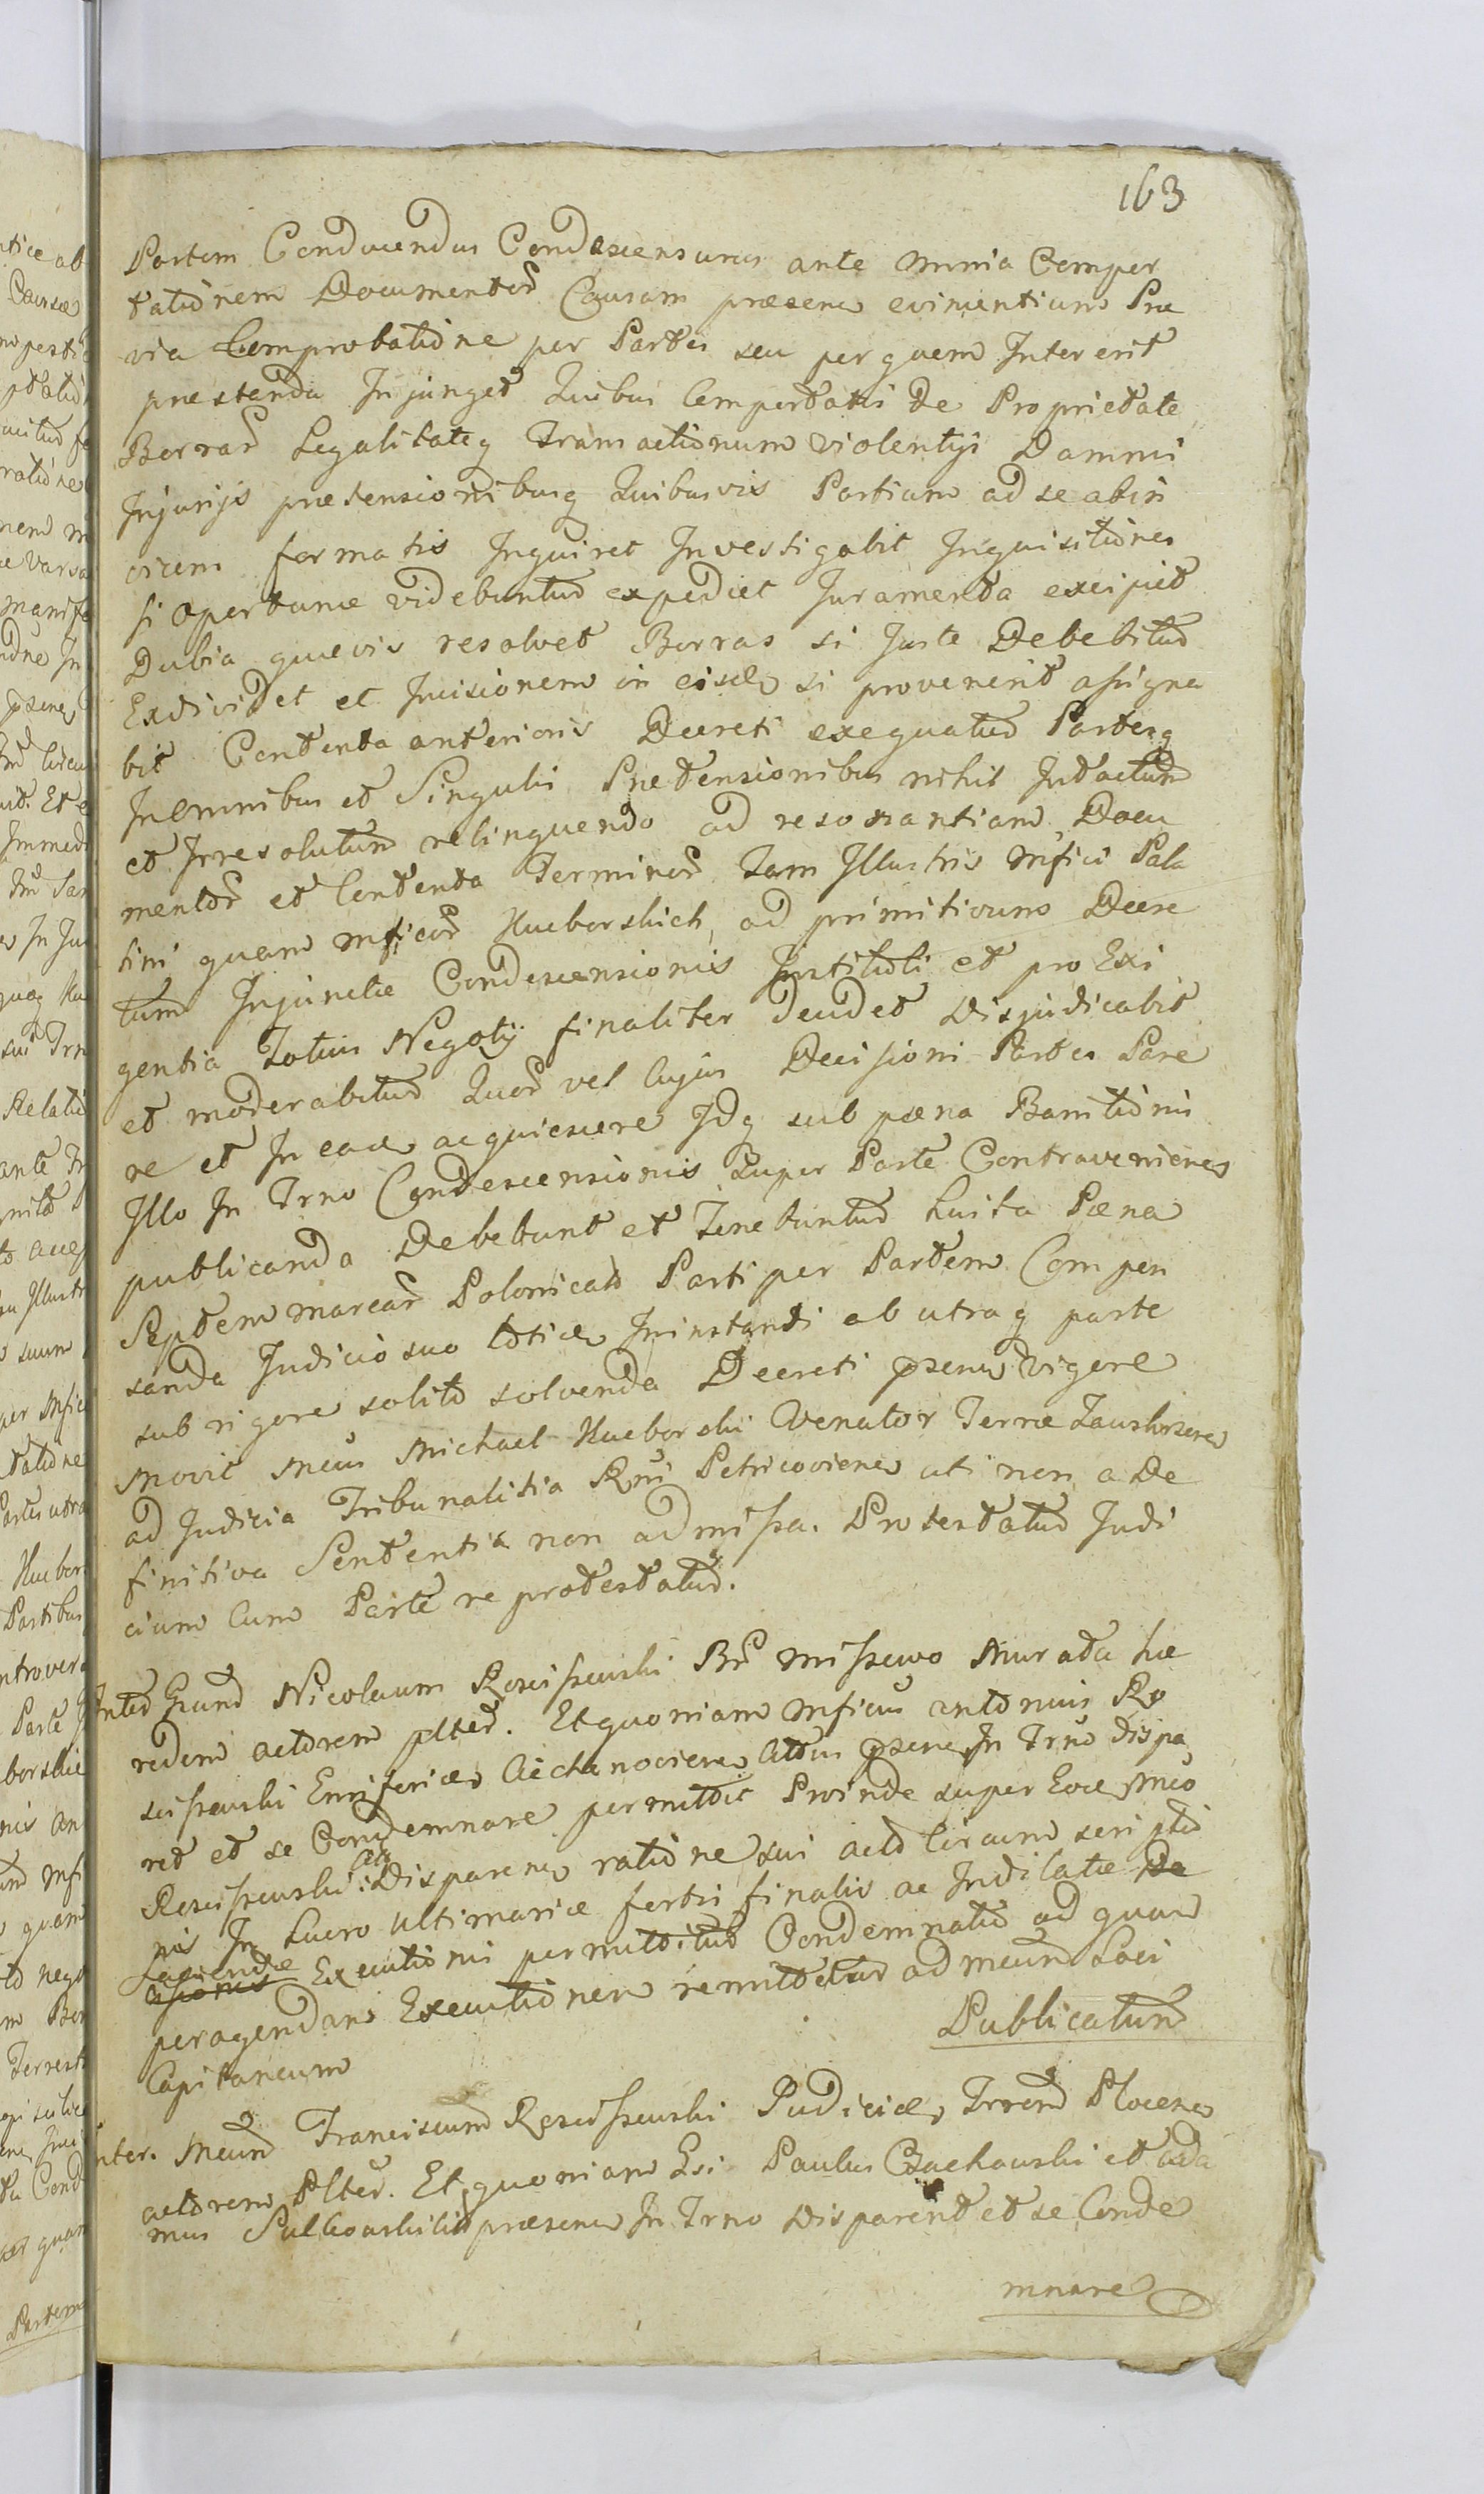 163
Partem Conducendus Condescensurus ante omnia Compor
tationem Documentor Causam præsen evincentium Præ
via Comprobatione per Partes seu per quem Intererit
præstenda Injunget Quibus Comportatis De Proprietate
Borrar Legalitateq Transactionum violentys Damnis
Injurijs prætensionibusq Quibusvis Partium ad se ab in
vicem formatis Inquiret Investigabit Inquisitiones
si oportunæ videbuntur expediet Juramenta excipiet
Dubia quævis resolvet Borras si Juste Debebitur
Exdividet et Incisionem in eisd si provenerit assigna
bit Contenta anterioris Decreti exequatur Partesq
In omnibus et Singulis Prætensionibus nihil Intactum
et Irresolutum relinquendo ad resonantiam Docu
mentor et Contenta Terminor Tam Illustris Mfici Pala
tini quam Mficor Humborskich ad primitivum Decre
tum Injunctæ Condescensionis Instituti et pro Exi
gentia Totius Negotij finaliter Deudet Disjudicabit
et moderabitur Quor vel Cujus Decisioni Partes Pare
re et In ead acquiescere Idq sub pæna Banitionis
Illo In Trno Condescensionis Super Parte Contravenien
publicanda Debebunt et Tenebuntur Luita Pæna
Septem marcar Polonicali Parti per Partem Compen
sanda Judicio suo Instanti ab utraq parte
sub rigore solito solvenda Decreti psens vigore
Movit Mcus Michael Humborski Venator Terræ Zauskrzen
ad Judicia Tribunalitia Rni Petricovien uti non a De
finitiva Sententia non admissa. Protestatur Judi
cium Cum Parte reprotestatur.
Inter Grund Nicolaum Rosciszewski Br Miszewo Murata hæ
redem actorem plter. Et quoniam Mficus antonius Ro
sciszewski Ensiferid Ciechanovien Citus psens In Trno dispa
ret et se Condemnare permittit Proinde super Eod Mco
Rosciszewski Cito Disparen ratione sui acto Circum scriptio
nis In Lucro Ultimariæ fortis finalis ac Indilatæ De
Faciendæ Executionis permittitur Condemnatio ad quam
peragendam Executionem remittetur ad Mcum Loci
Capitaneum
Publicatum
Inter. Mcum Franciscum Rosciszewski Judicid Trrem Plocen
actorem Plter. Et quoniam Gsi Paulus Bachowski et ada
mus Sulkowski Citi præsens In Trno Disparent et se Conde
mnare